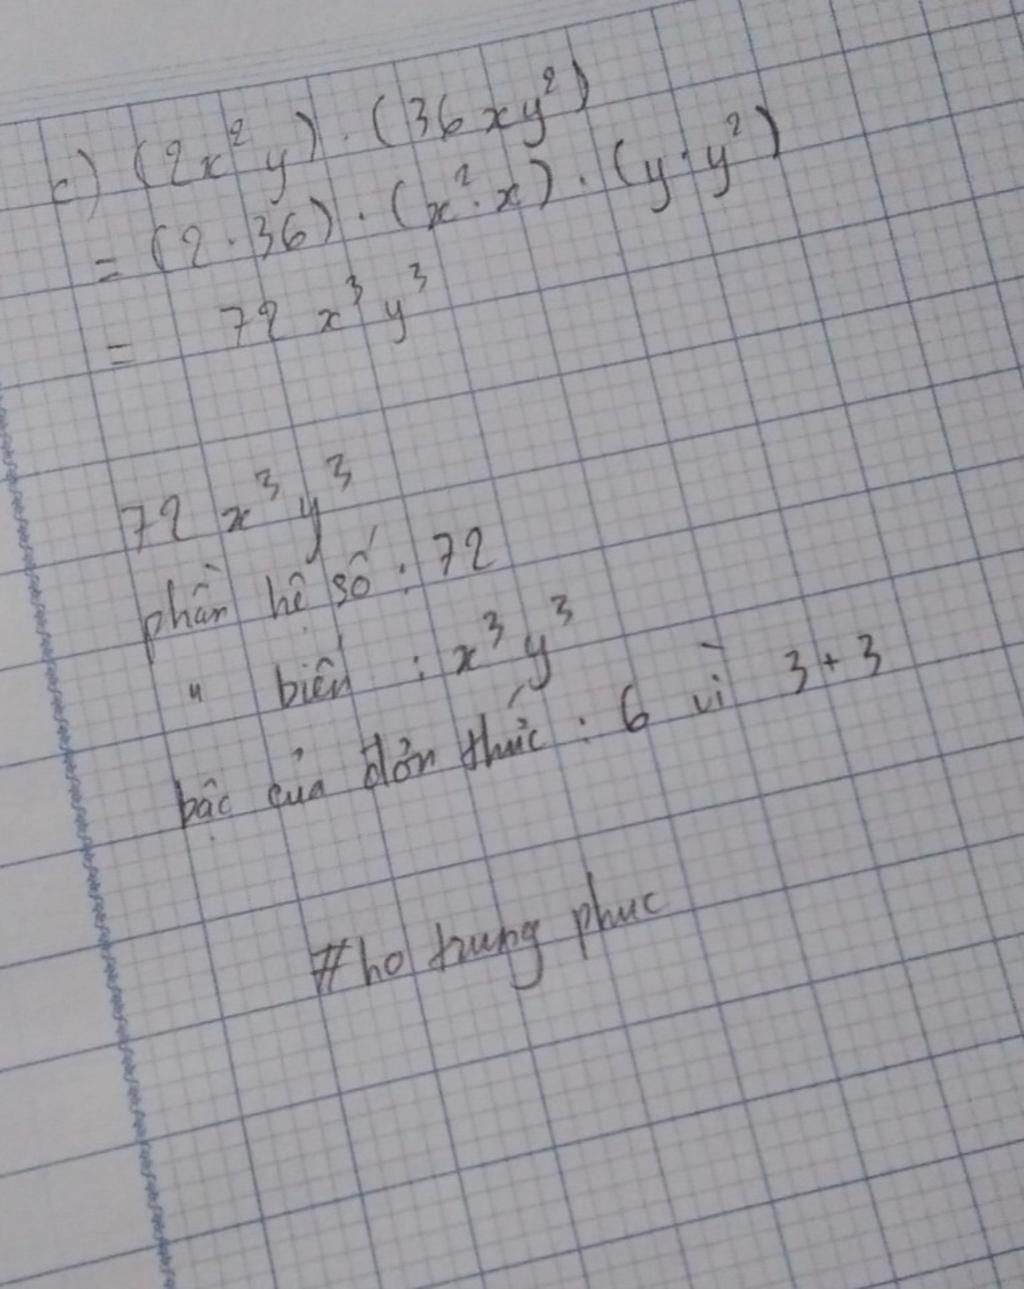 c) (2x²y) . (36xy²)
= (2 . 36) . (x² . x) . (y . y²)
= 72 x³ y³
72 x³ y³
phần hệ số : 72
" biến : x³ y³
bậc của đơn thức : 6 vì 3 + 3
#ho trung phuc